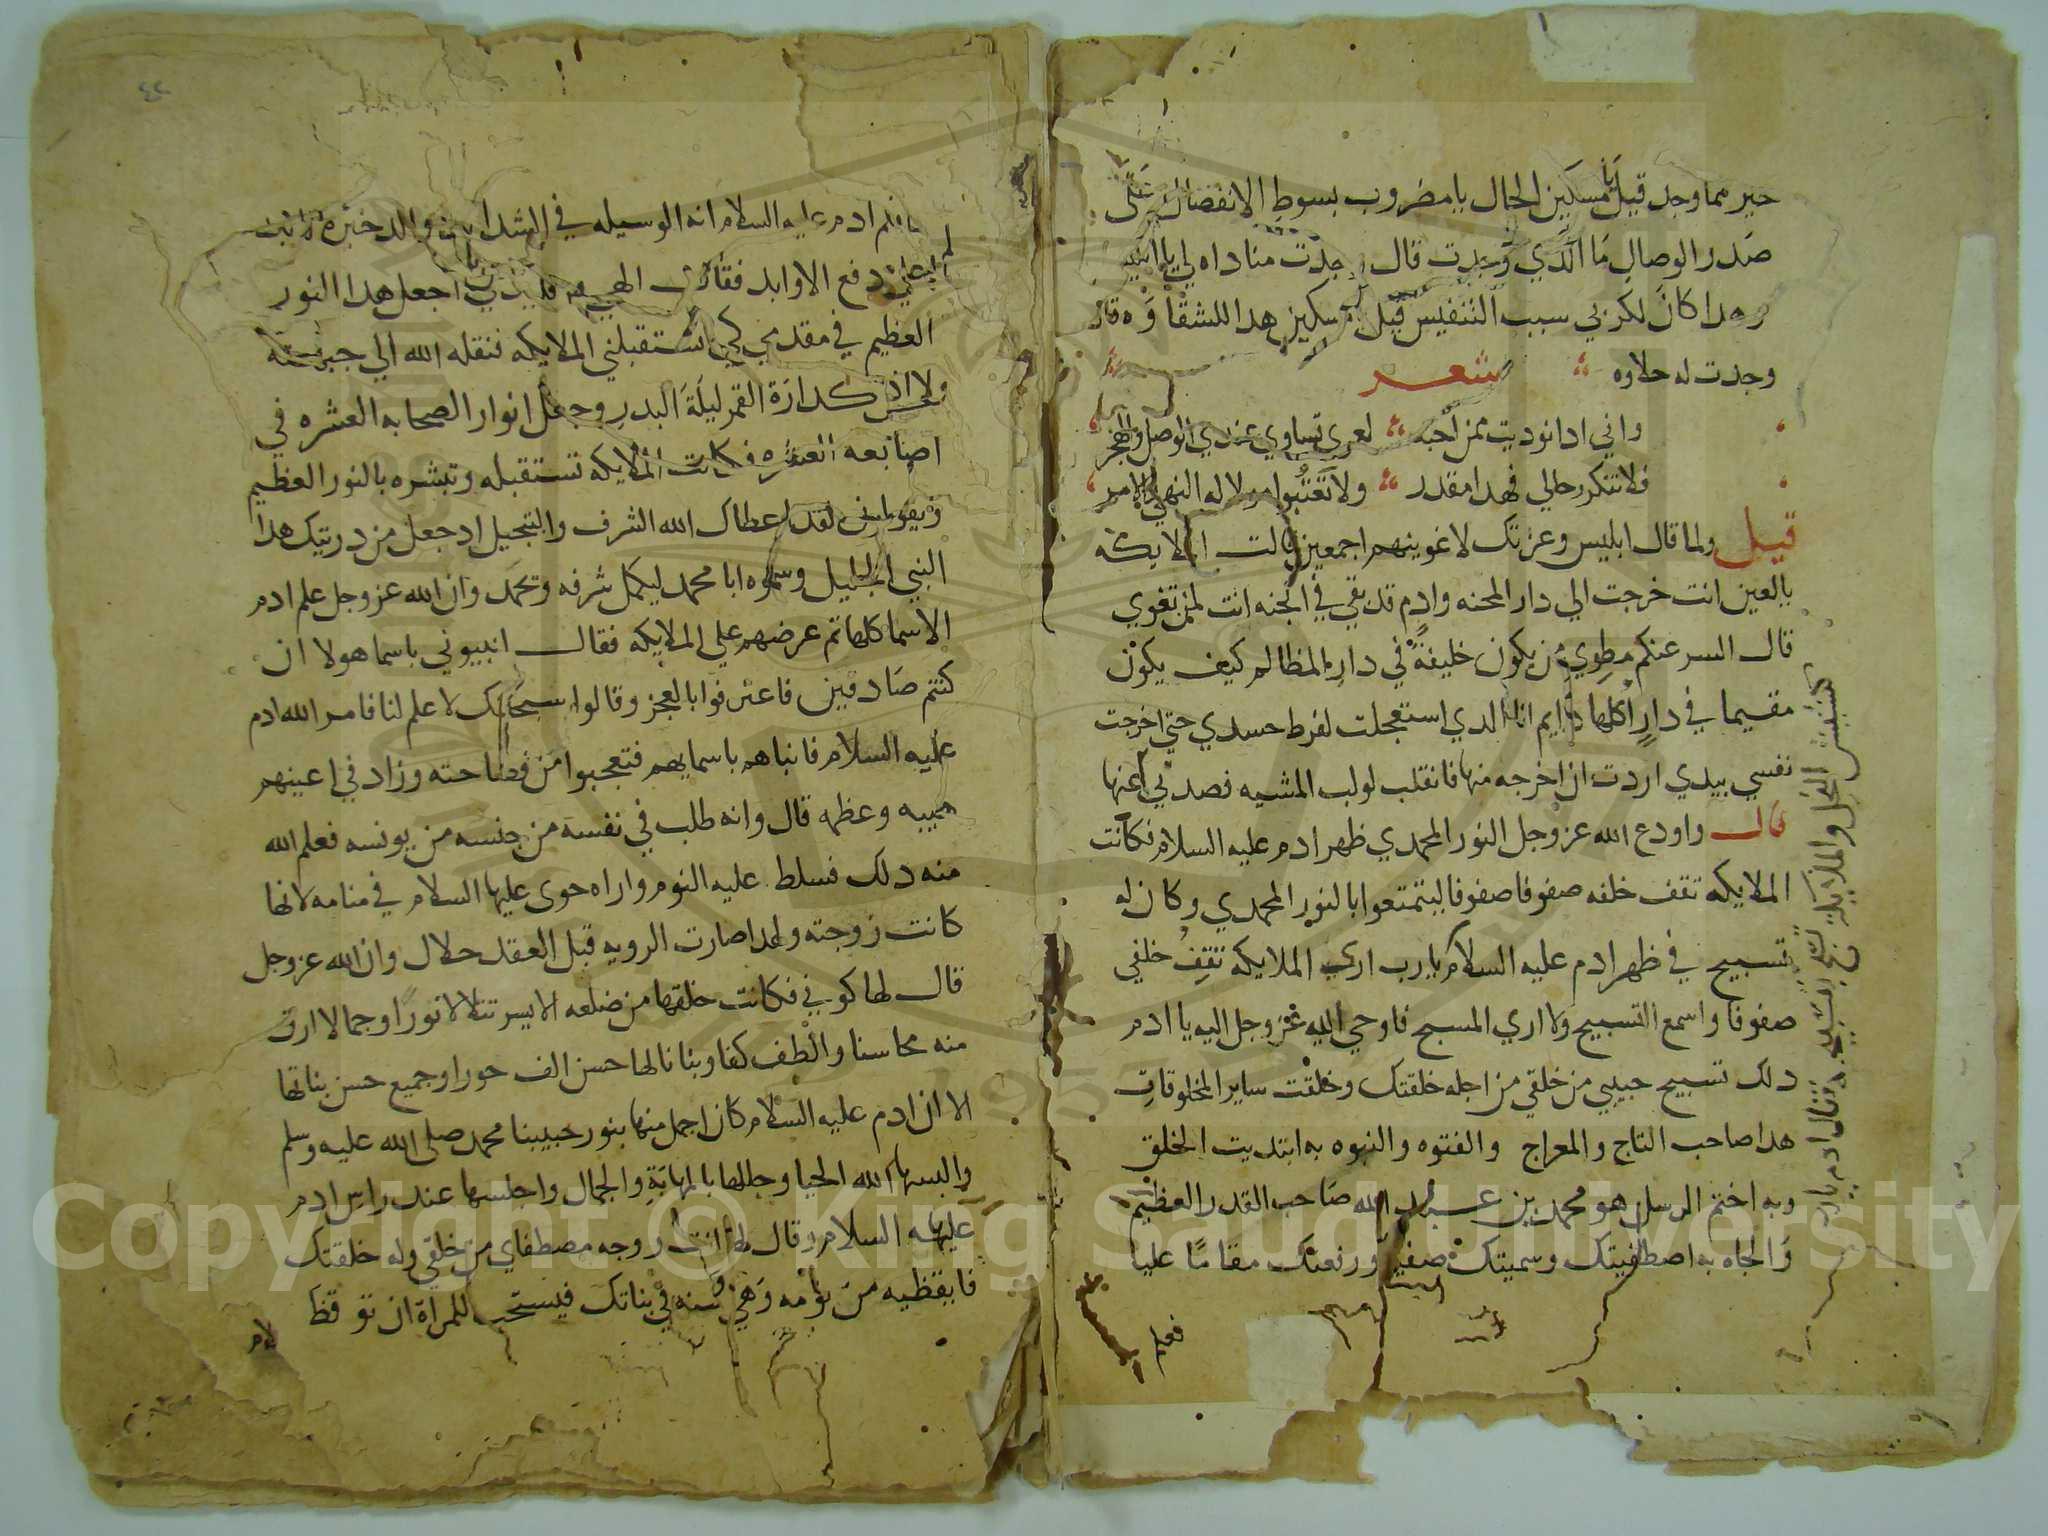 خير مما وجد قيل يا مسكين الحال يا مضروب بسوط الانفصال على
صدر الوصال ما الذي وجدت قال وجدت مناداه لي يا ابليس
وهدا كان لكربي سبب التنفيس قيل مسكين هدا للشقاوه قال
وجدت له حلاوه شعر
واني ادا نوديت ممن احبه لعمري تساوي عندي الوصل والهجر
فلا تنكرو حالي فهدا مقدر ولا تعتبوا من لا له النهي والامر
قيل ولما قال ابليس وعزتك لاغوينهم اجمعين قالت الملايكه
يا لعين انت خرجت الي دار المحنه وادم قد بقي في الجنه انت لمن تغوي
قال السر عنكم مطوي من يكون خليفة في دار المظالم كيف يكون
مقيما في دار اكلها دايم انا الدي استعجلت لفرط حسدي حتي اخرجت
نفسي بيدي اردت ان اخرجه منها فانقلب لولب المشيه فصد بي عنها
قال واودع الله عز وجل النور المحمدي ظهر ادم عليه السلام فكانت
الملايكه تقف خلفه صفوفا صفوفا ليتمتعوا بالنور المحمدي وكان له
تسبيح في ظهر ادم عليه السلام يا رب اري الملايكه تقف خلفي
صفوفا واسمع التسبيح ولا اري المسبح فاوحي الله عز وجل اليه يا ادم
دلك تسبيح حبيبي من خلقي من اجله خلقتك وخلقت ساير المخلوقات
هدا صاحب التاج والمعراج والفتوه والنبوه به ابتديت الخلق
وبه اختم الرسل هو محمد بن عبد الله صاحب القدر العظيم
والجاه به اصطفيتك وسميتك صفيا ورفعتك مقاما عليا
فعلم
كتسبيح النحل والملايكه تسبح لتسبيحه فقال ادم يا رب
٤٢
فعلم ادم عليه السلام انه الوسيله في الشدايد والدخيره
دفع الاوابد فقال الهي وسيدي اجعل هدا النور
العظيم في مقدمي كي تستقبلني الملايكه فنقله الله الي جبينه
ولاح كدارة القمر ليلة البدر وجعل انوار الصحابه العشره في
اصابعه العشره فكانت الملايكه تستقبله وتبشره بالنور العظيم
ويقولون لقد اعطاك الله الشرف والتبجيل اد جعل من دريتك هدا
النبي الجليل وسموه ابا محمد ليكمل شرفه وتحمد وان الله عز وجل علم ادم
الاسما كلها تم عرضهم علي الملايكه فقال انبيوني باسما هولا ان
كنتم صادقين فاعترفوا بالعجز وقالوا سبحانك لا علم لنا فامر الله ادم
عليه السلام فانباهم باسمايهم فتعجبوا من فصاحته وزاد في اعينهم
هيبيه وعظمه قال وانه طلب في نفسه من جنسه من يونسه فعلم الله
منه دلك فسلط عليه النوم واراه حوي عليها السلام في منامه لانها
كانت زوجته ولهدا صارت الرويه قبل العقد حلال وان الله عز وجل
قال لها كوني فكانت خلقها من ضلعه الايسر تتلالا نورا وجمالا ارق
منه محاسنا والطف كفا وبنانا لها حسن الف حورا وجميع حسن بناتها
الا ان ادم عليه السلام كان اجمل منها بنور حبيبنا محمد صلى الله عليه وسلم
والبسها الله الحيا وجللها بالمهابة والجمال واجلسها عند راس ادم
عليهما السلام وقال لها انت زوجه مصطفاي من خلقي وله خلقتك
فايقظيه من نومه وهي سنه في بناتك فيستحب للمراة ان توقظ